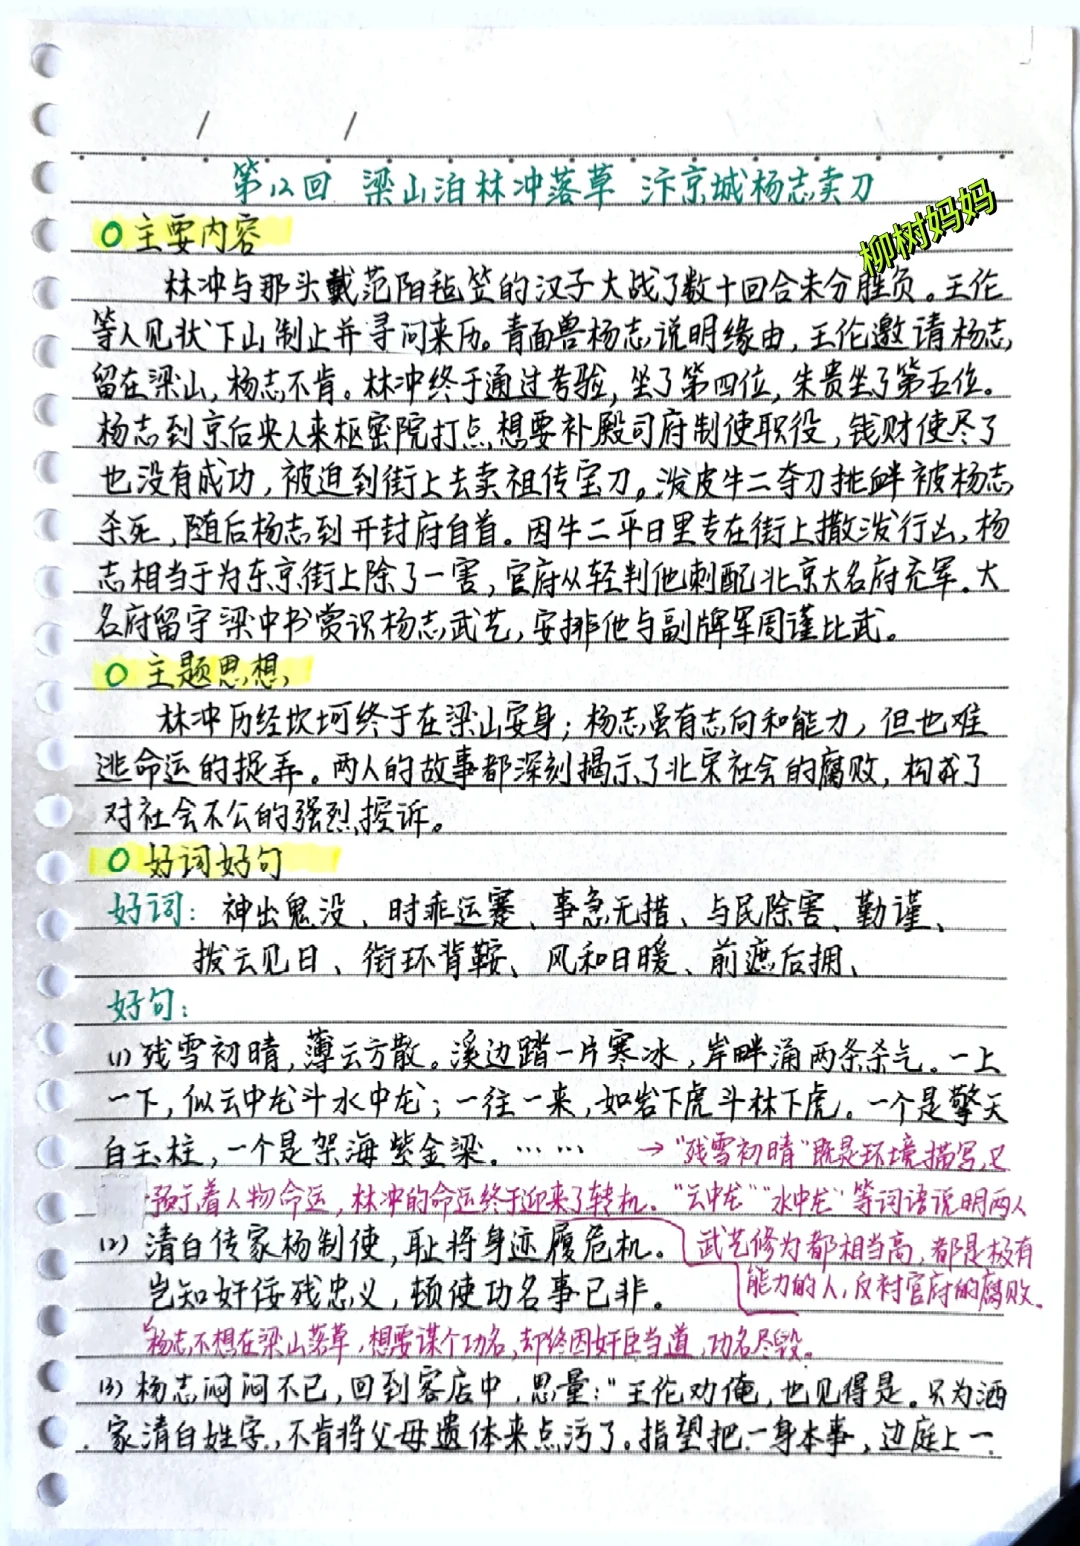 第12回 梁山泊林冲落草 汴京城杨志卖刀
柳树妈妈
主要内容
林冲与那头戴范阳毡笠的汉子大战了数十回合未分胜负。王伦
等人见状下山制止并寻问来历。青面兽杨志说明缘由，王伦邀请杨志
留在梁山，杨志不肯。林冲终于通过考验，坐了第四位，朱贵坐了第五位。
杨志到京后央人来枢密院打点，想要补殿司府制使职役，钱财使尽了
也没有成功，被迫到街上去卖祖传宝刀。泼皮牛二夺刀挑衅被杨志
杀死，随后杨志到开封府自首。因牛二平日里专在街上撒泼行凶，杨
志相当于为东京街上除了一害，官府从轻判他刺配北京大名府充军。大
名府留守梁中书赏识杨志武艺，安排他与副牌军周谨比武。
主题思想
林冲历经坎坷终于在梁山安身；杨志虽有志向和能力，但也难
逃命运的捉弄。两人的故事都深刻揭示了北宋社会的腐败，构成了
对社会不公的强烈控诉。
好词好句
好词：神出鬼没、时乖运蹇、事急无措、与民除害、勤谨、
拨云见日、衔环背鞍、风和日暖、前遮后拥、
好句：
(1) 残雪初晴，薄云方散。溪边踏一片寒冰，岸畔涌两条杀气。一上
一下，似云中龙斗水中龙；一往一来，如岩下虎斗林下虎。一个是擎天
白玉柱，一个是架海紫金梁。…… →“残雪初晴”既是环境描写，又
预示着人物命运，林冲的命运终于迎来了转机。“云中龙”“水中龙”等词语说明两人
(2) 清白传家杨制使，耻将身迹履危机。 武艺修为都相当高，都是极有
岂知奸佞残忠义，顿使功名事已非。 能力的人，反衬官府的腐败.
杨志不想在梁山落草，想要谋个功名，却终因奸臣当道，功名尽毁。
(3) 杨志闷闷不已，回到客店中，思量：“王伦劝俺，也见得是。只为洒
家清白姓字，不肯将父母遗体来点污了。指望把一身本事，边庭上一